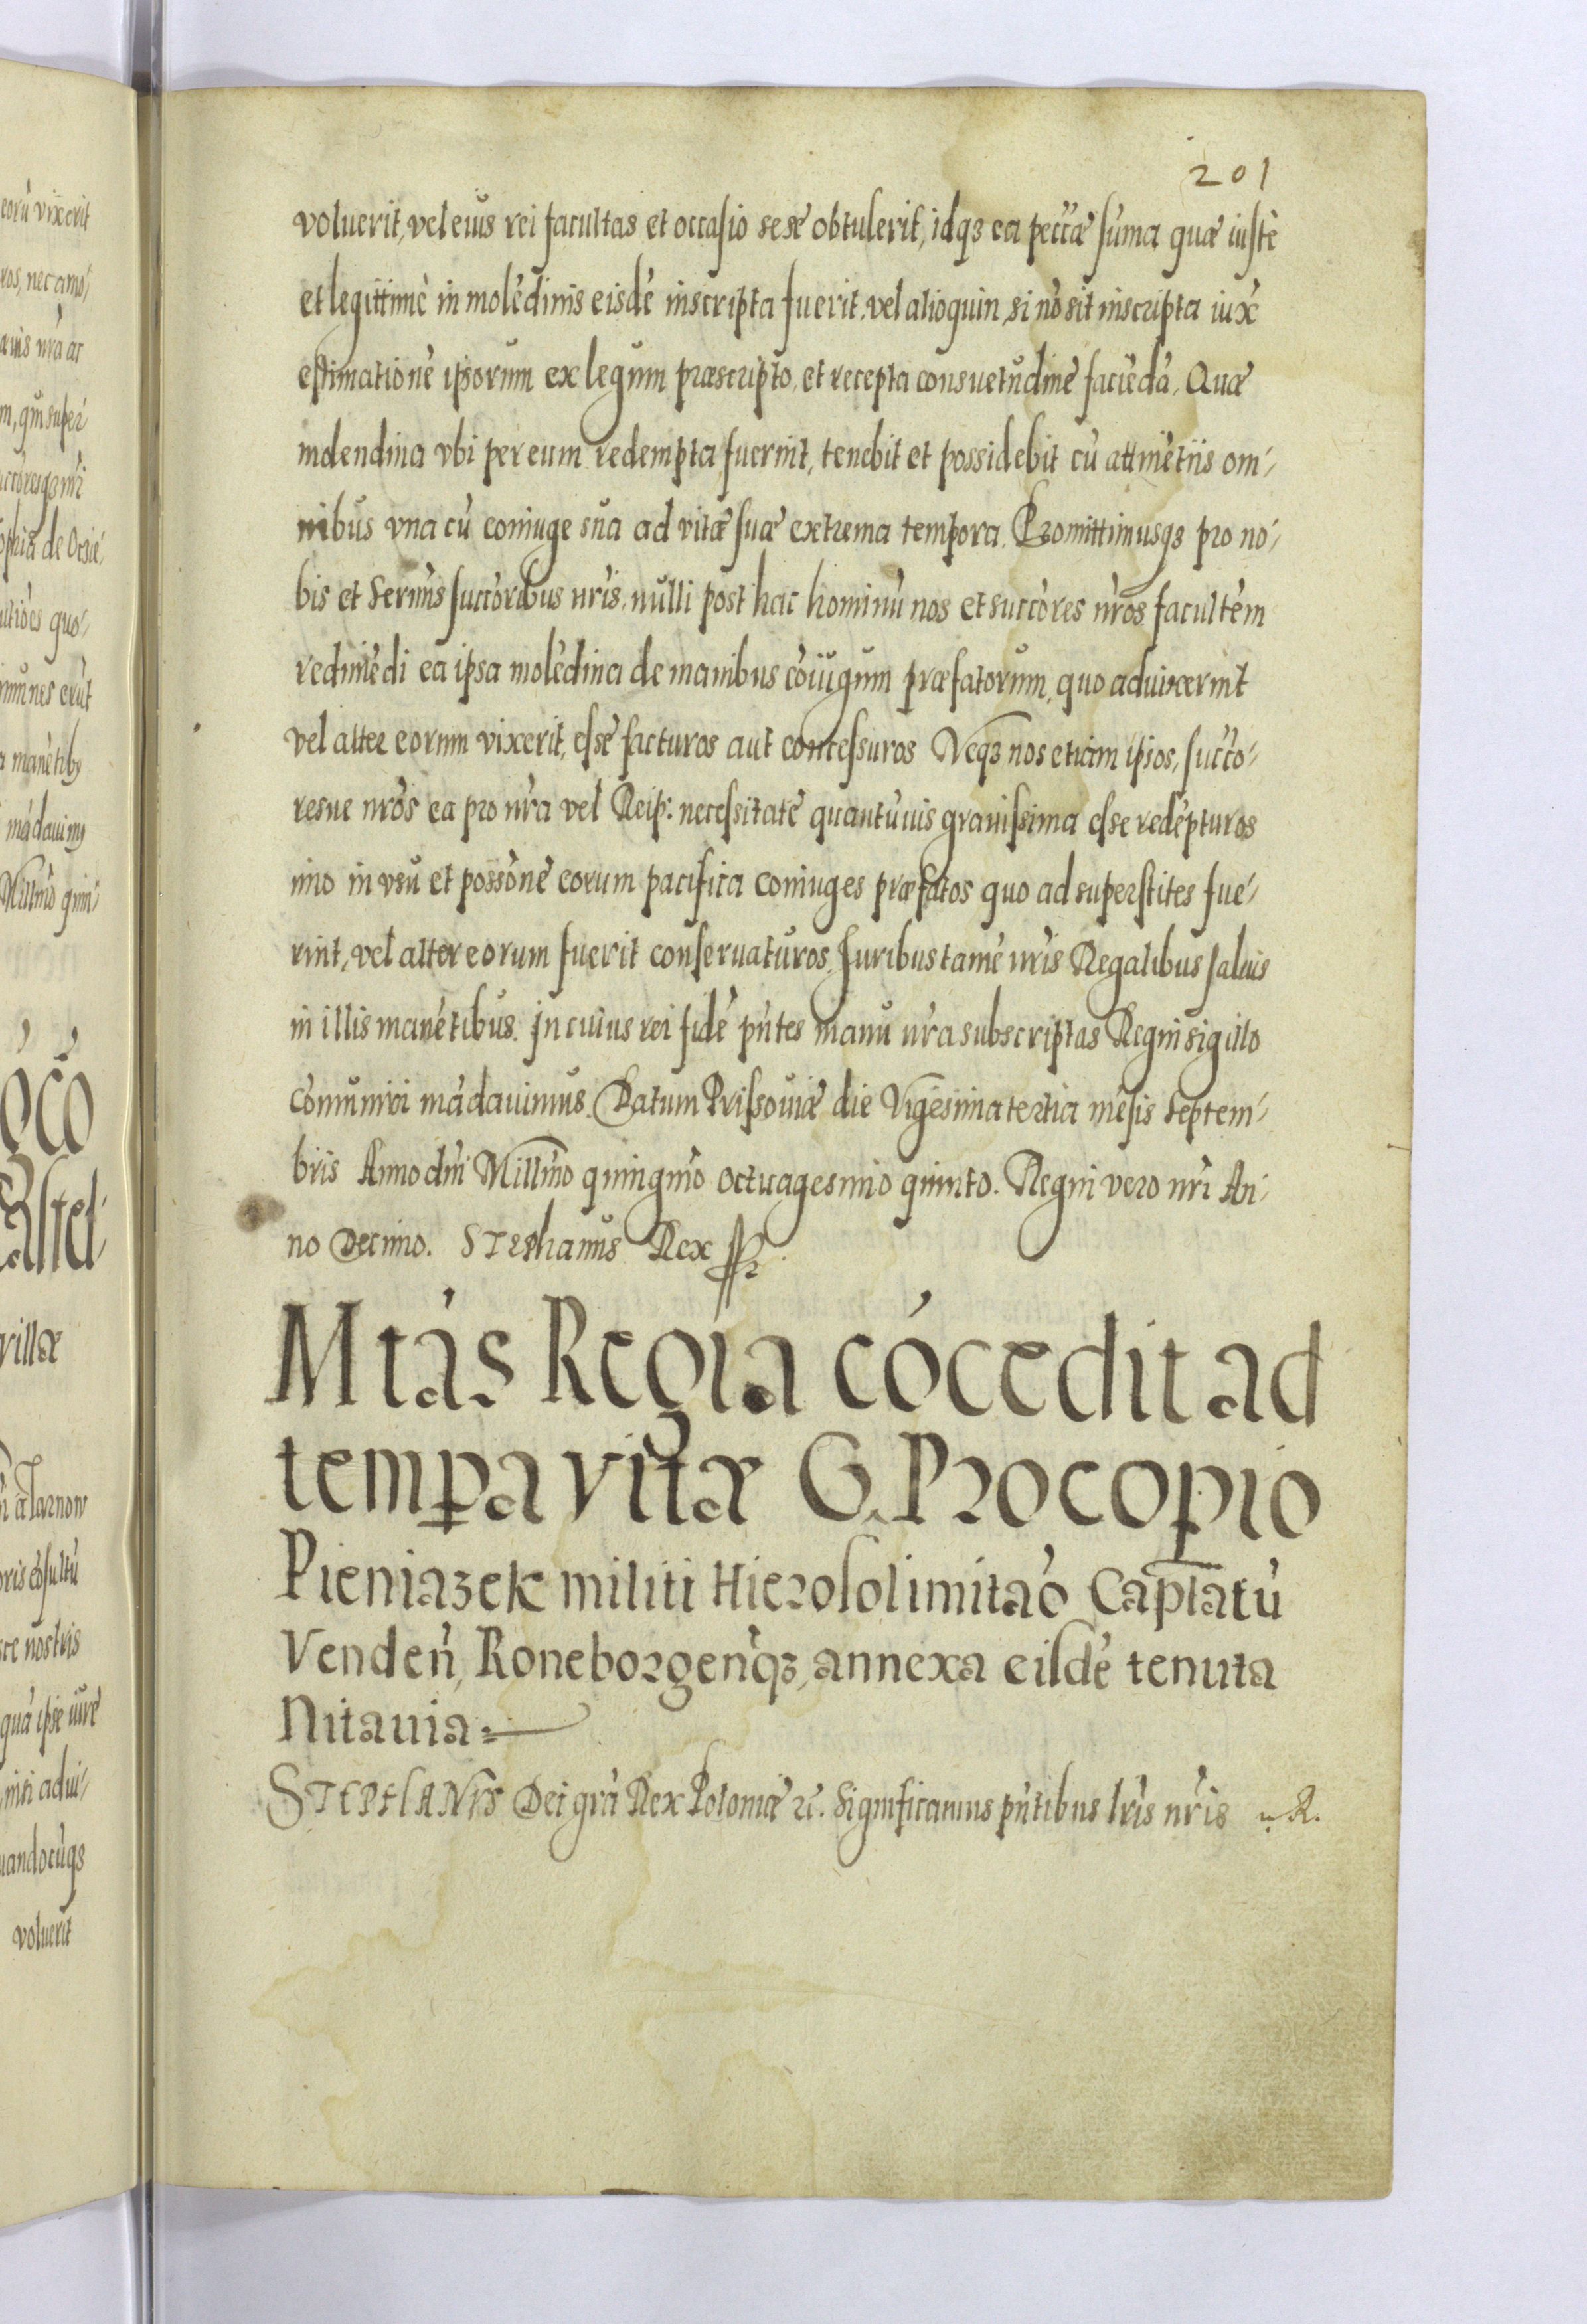 201
voluerit, vel eius rei facultas et occasio sese obtulerit, idq3 ea peccæ sum̀a quæ iustè
et legittimè in molèdinis eisdè inscripta fuerit. vel alioquin si nò sit inscripta iux̀
estimationè ipsorum ex legum præscripto, et recepta consuetudinè facièdà. Quæ
molendina vbi per eum redempta fuerint, tenebit et possidebit cù attinètiis om-
nibus vna cù coniuge sua ad vitæ suæ extrema tempora. Promittimusq3 pro no-
bis et Serm̀is succòribus nr̀is, nulli post hac hominù nos et succòres nr̀os facultèm
redimèdi ea ipsa molèdina de manibus còiugum præfatorum, quo aduixerint
vel alter eorum vixerit, esse facturos aut concessuros Neq3 nos etiam ipsos, succo-
resue nr̀os ea pro nr̀a vel Reip: necessitatè quantùuis grauissima esse redèpturos
imo in vsu et possònè eorum pacifica coniuges præfatos quo ad superstites fue-
rint, vel alter eorum fuerit conseruaturos, Juribus tamè nr̀is Regalibus saluis
in illis manètibus. In cuius rei fidè pǹtes manu nr̀a subscriptas Regni sigillo
còmuniri màdauimus. Datum Prissouiæ die Vigesima tertia mèsis Septem-
bris Anno dnì Millm̀o quingm̀o octuagesimo quinto. Regni vero nr̀i An-
no Decimo. STEPhanus Rex
Mtàs Regia còcedit ad
tempa vitæ G. Procopio
Pieniazek militi Hierosolimitaò Captatù
Vendeǹ, Roneborgeǹq3, annexa eisdè tenuta
Nitauia
STEPHANUS Dei grà Rex Poloniæ rc̀. Significamus pǹtibus lr̀is nr̀is u. R.
eorù vixerit
ros, nec amo-
nr̀a ac
m, qui super
ophia de Ocie-
quo-
munes erùt
manètib9
màdauim9
Millm̀o quin-
òcò
Castel-
villæ
à Tarnow
còsultù
nostris
quà ipse iurè
adui-
uandocùq3
voluerit